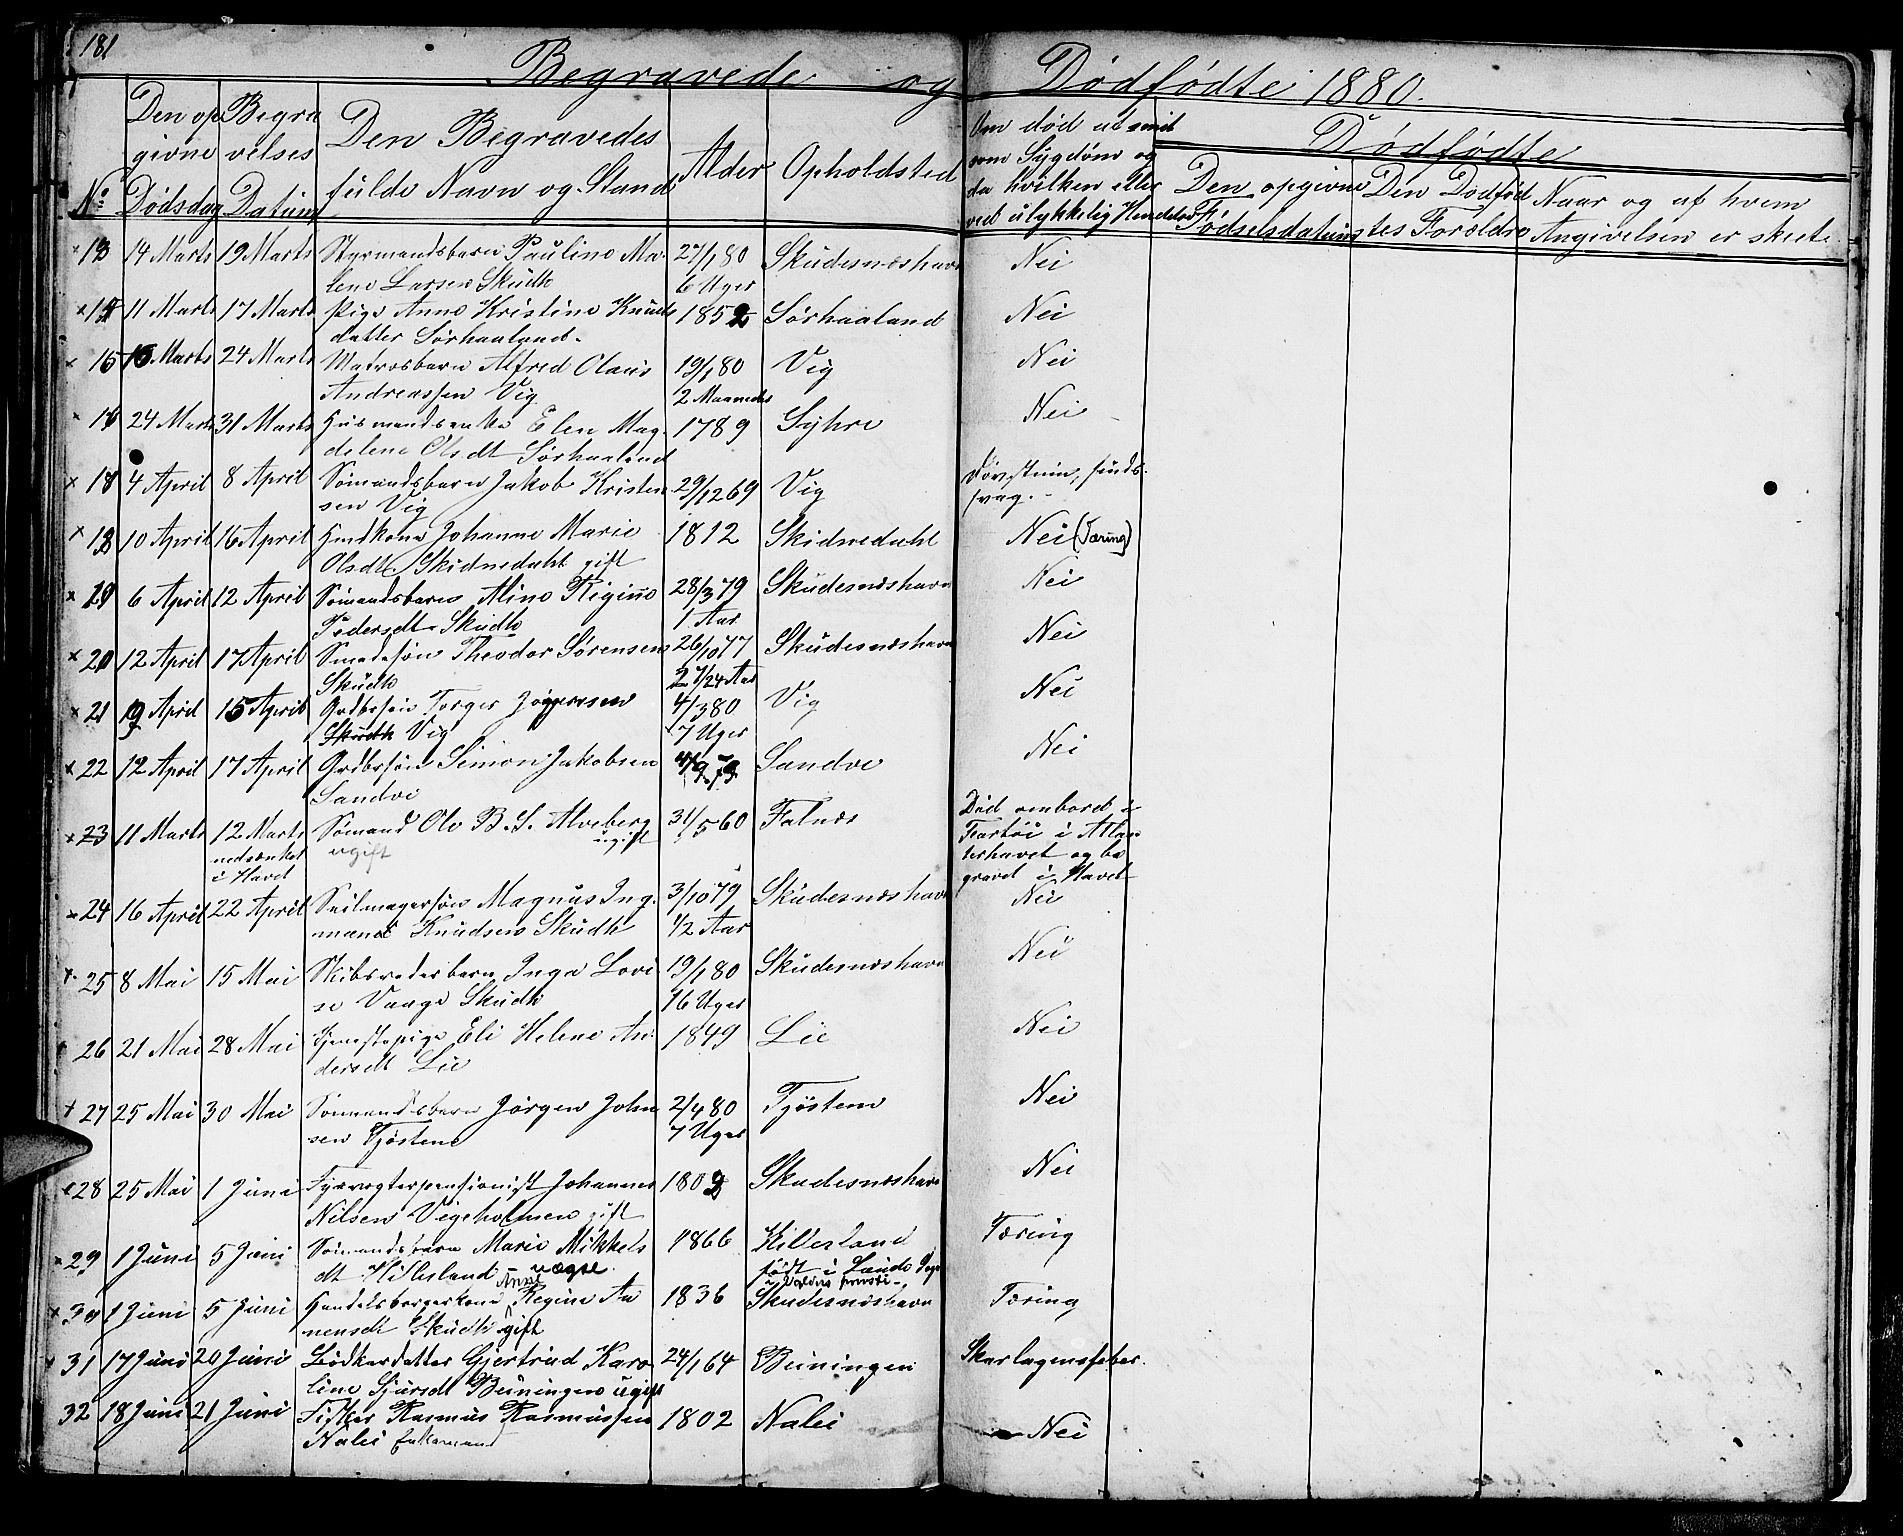 181
Begravede og Dødfødte 1880.
No Den opgivne Dødsdag Begravelses Datum Den Begravedes fulde Navn og Stand Alder Opholdsted Om død af smitsom Sygdom og da hvilken eller ved ulykkelig Hendelse
Dødfødte
Den opgivne Fødselsdatum Den Dødfødtes Forældre Naar og af hvem Angivelsen er skeet.
13 14 Marts 19 Marts Styrmandsbarn Pauline Ma- 27/1 80 Skudesnæshavn Nei
lene Larsen Skudh 6 Uger
14 11 Marts 17 Marts Pige Anne Kristine Knuds 1852 Sørhaaland Nei
datter Sørhaaland.
15 15 Marts 24 Marts Matrosbarn Alfred Olaus 19/1 80 Vig Nei
Andreassen Vig 2 Maaneder
16 24 Marts 31 Marts Husmandsenke Elen Mag- 1789 Syhre Nei
delene Olsdt Sørhaaland
4 April 8 April Sømandsbarn Jakob Kristen 29/12 69 Vig Døvstum, sinds-
sen Vig svag.
18 10 April 16 April Hmdkone Johanne Marie 1812 Skidnedahl Nei (Tæring)
Olsdt Skidnedahl gift
19 6 April 12 April Sømandsbarn Aline Regine 28/3 79 Skudesnæshavn Nei
Pedersdt Skudh 1 Aar
20 12 April 17 April Smedesøn Theodor Sørensen 26/10 77 Skudesnæshavn Nei
Skudh 2 Aar
21 9 April 15 April Grdbrsøn Torger 4/3 80 Vig Nei
Skudh Vig 7 Uger
22 12 April 17 April Grdbrsøn Simon Jakobsen Sandve Nei
Sandve
23 11 Marts 12 Marts Sømand Ole B. S. Alveberg 31/5 60 Falnæs Død ombord i
nedsænket ugift ugift Fartøi i Atlan
i Havet terhavet og be
gravet i Havet
24 16 April 22 April Seilmagersøn Magnus Ing- 3/10 79 Skudesnæshavn Nei
mand Knudsen Skudh 1/2 Aar
25 8 Mai 15 Mai Skibsrederbarn Inga Lovi 19/1 80 Skudesnæshavn Nei
se Vaage Skudh 16 Uger
26 21 Mai 28 Mai Tjenestepige Eli Helene An- 1849 Lie Nei
dersdt Lie
27 25 Mai 30 Mai Sømandsbarn Jørgen John 2/4 80 Tjøstem Nei
sen Tjøstem 7 Uger
28 25 Mai 1 Juni Fyrvogterpensionist Johannes 1802 Skudesnæshavn Nei
Nilsen Vigeholmen gift
29 1 Juni 5 Juni Sømandsbarn Marie Mikkels 1866 Hillesland Tæring
dt Hillesland uægte. født i Lands
30 1 Juni 5 Juni Handelsborgerkone Anne Regine An 1836 Skudesnæshavn Tæring
nensdt Skudh gift
31 17 Juni 20 Juni Bødkerdatter Gjertrud Karo 24/1 64 Beiningen Skarlagensfeber.
line Sjursdt Beiningen ugift
32 18 Juni 21 Juni Fisker Rasmus Rasmussen 1802 Nalei Nei
Nalei Enkemand